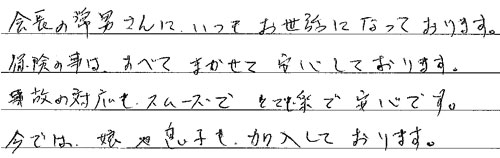 会長の常男さんに、いつもお世話になっております。
保険の事は、すべてまかせて安心しております。
事故の対応も、スムーズでとても楽で安心です。
今では、娘や息子も、加入しております。